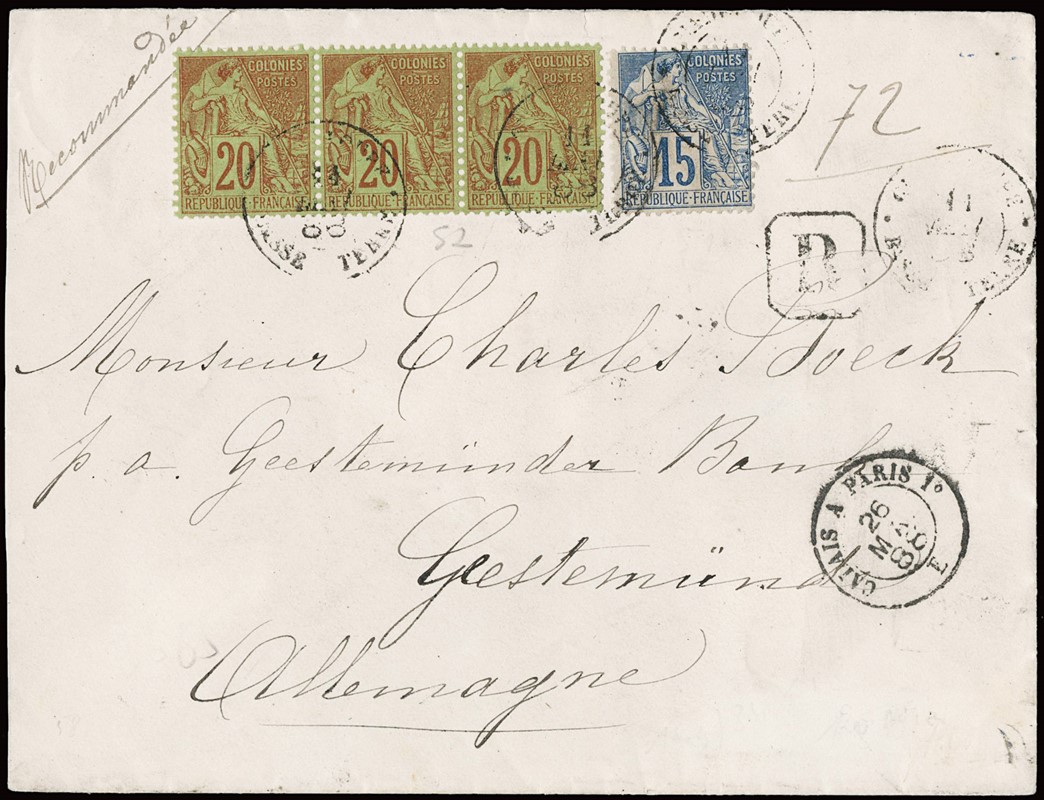 Recommandée
COLONIES
POSTES
20
REPUBLIQUE-FRANÇAISE
COLONIES
POSTES
20
REPUBLIQUE-FRANÇAISE
COLONIES
POSTES
20
REPUBLIQUE-FRANÇAISE
COLONIES
POSTES
15
REPUBLIQUE-FRANÇAISE
BASSE TERRE
11
72
52
R
11
TERRE
Monsieur Charles Boeck
p. a. Geestemünder Bank
Geestemünde
Allemagne
CALAIS A PARIS 1º
26
MAI
86
E